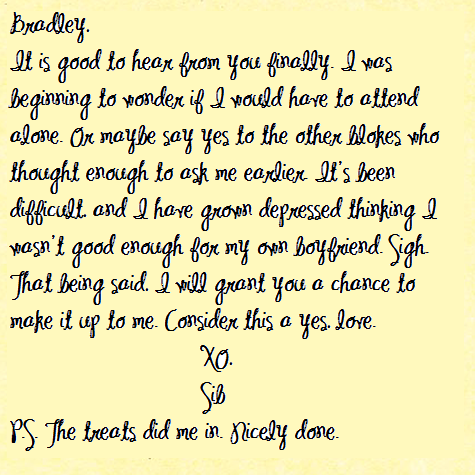 Bradley,
It is good to hear from you finally. I was
beginning to wonder if I would have to attend
alone. Or maybe say yes to the other blokes who
thought enough to ask me earlier. It's been
difficult, and I have grown depressed thinking I
wasn't good enough for my own boyfriend. Sigh.
That being said, I will grant you a chance to
make it up to me. Consider this a yes, love.
XO,
Sib
P.S. The treats did me in. Nicely done.